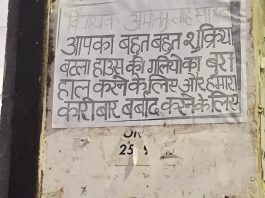 विधायक अमानतुल्लाह साहब
आपका बहुत बहुत शुक्रिया
बटला हाउस की गलियों का बुरा
हाल करने के लिए और हमारा
कारोबार बर्बाद करने के लिए
25